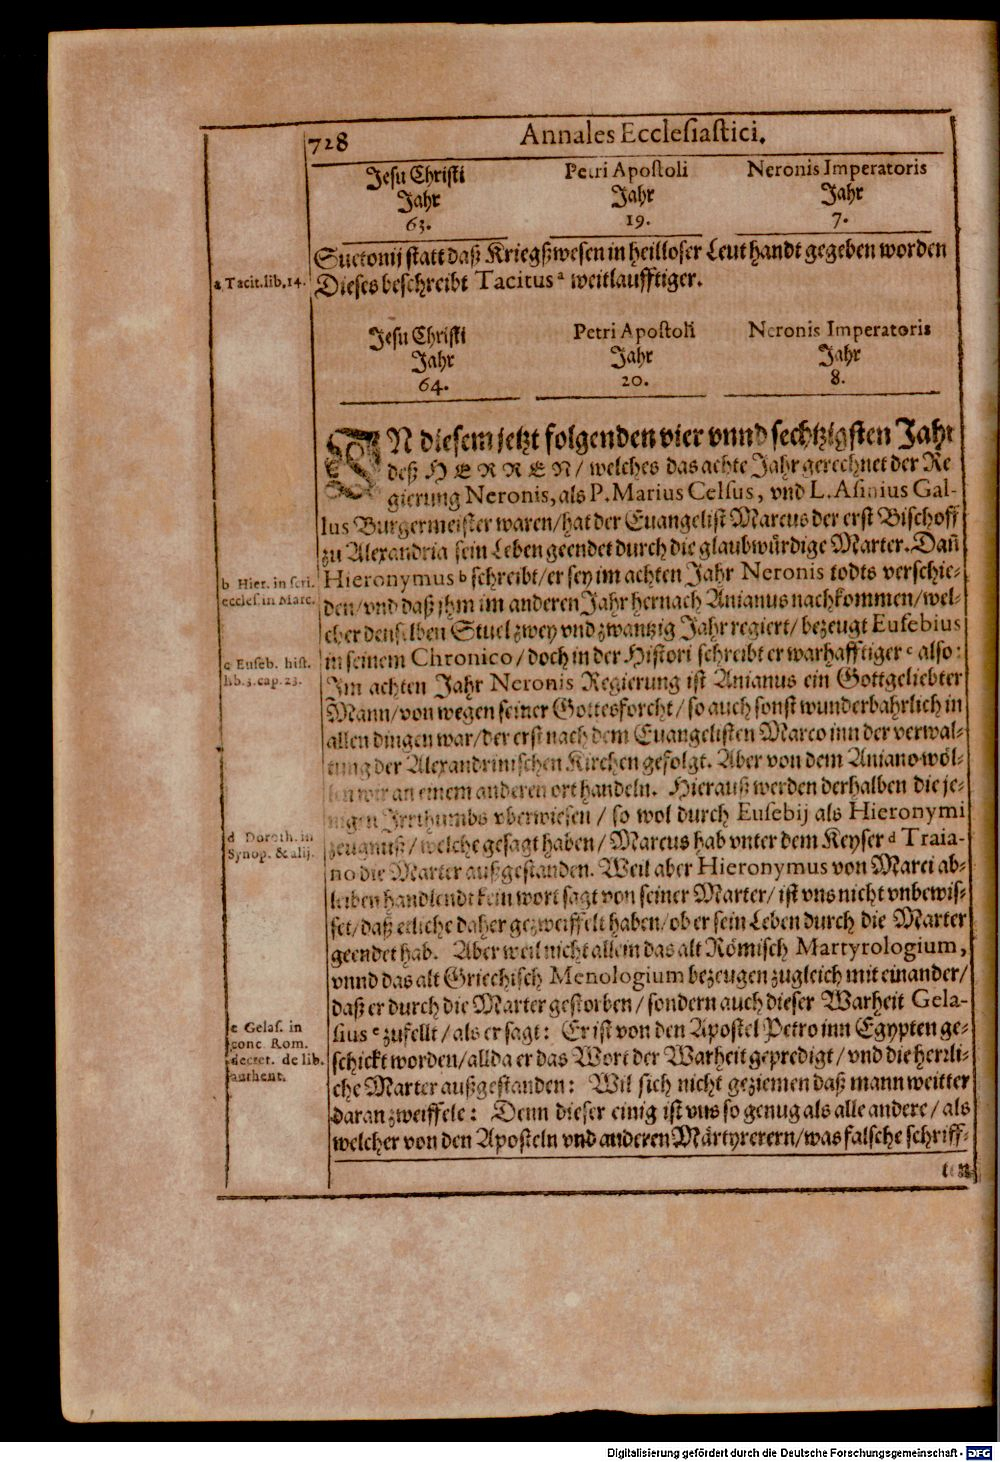 728 Annales Ecclesiastici.
Jesu Christi Petri Apostoli Neronis Imperatoris
Jahr Jahr Jahr
63. 19. 7.
Suetonij statt daß Kriegßwesen in heilloser Leut handt gegeben worden
a Tacit. lib. 14.
Dieses beschreibt Tacitus a weitlaufftiger.
Jesu Christi Petri Apostoli Neronis Imperatoris
Jahr Jahr Jahr
64. 20. 8.
IN diesem jetzt folgenden vier vnnd sechtzigsten Jahr
deß HERREN / welches das achte Jahr gerechnet der Re
gierung Neronis, als P. Marius Celsus, vnd L. Asinius Gal-
lus Burgermeister waren / hat der Euangelist Marcus der erst Bischoff
zu Alexandria sein Leben geendet durch die glaubwürdige Marter. Dañ
b Hier. in scri. eccles. in Marc.
Hieronymus b schreibt / er sey im achten Jahr Neronis todts verschie-
den / vnd daß jhm im anderen Jahr hernach Anianus nachkommen / wel-
cher denselben Stuel zwey vnd zwantzig Jahr regiert / bezeugt Eusebius
c Euseb. hist. lib. 3. cap. 23.
in seinem Chronico / doch in der Histori schreibt er warhafftiger c also:
Im achten Jahr Neronis Regierung ist Anianus ein Gottgeliebter
Mann / von wegen seiner Gottesforcht / so auch sonst wunderbahrlich in
allen dingen war / der erst nach dem Euangelisten Marco inn der verwal-
tung der Alexandrinischen Kirchen gefolgt. Aber von dem Aniano wöl-
len wir an einem anderen ort handeln. Hierauß werden derhalben die je-
nigen Irrthumbs vberwiesen / so wol durch Eusebij als Hieronymi
d Doroth. in Synop. & alij.
zeugnuß / welche gesagt haben / Marcus hab vnter dem Keyser d Traia-
no die Marter außgestanden. Weil aber Hieronymus von Marci ab-
leiben handlendt kein wort sagt von seiner Marter / ist vns nicht vnbewis-
set / daß etliche daher gezweiffelt haben / ob er sein Leben durch die Marter
geendet hab. Aber weil nicht allein das alt Römisch Martyrologium,
vnnd das alt Griechisch Menologium bezeugen zugleich mit einander /
daß er durch die Marter gestorben / sondern auch dieser Warheit Gela-
e Gelas. in conc. Rom. decret. de lib. authent.
sius e zufellt / als er sagt: Er ist von den Apostel Petro inn Egypten ge-
schickt worden / allda er das Wort der Warheit gepredigt / vnd die herrli-
che Marter außgestanden: Wil sich nicht geziemen daß mann weitter
daran zweiffele: Denn dieser einig ist vns so genug als alle andere / als
welcher von den Aposteln vnd anderen Märtyrerern / was falsche schriff-
ten
Digitalisierung gefördert durch die Deutsche Forschungsgemeinschaft - DFG